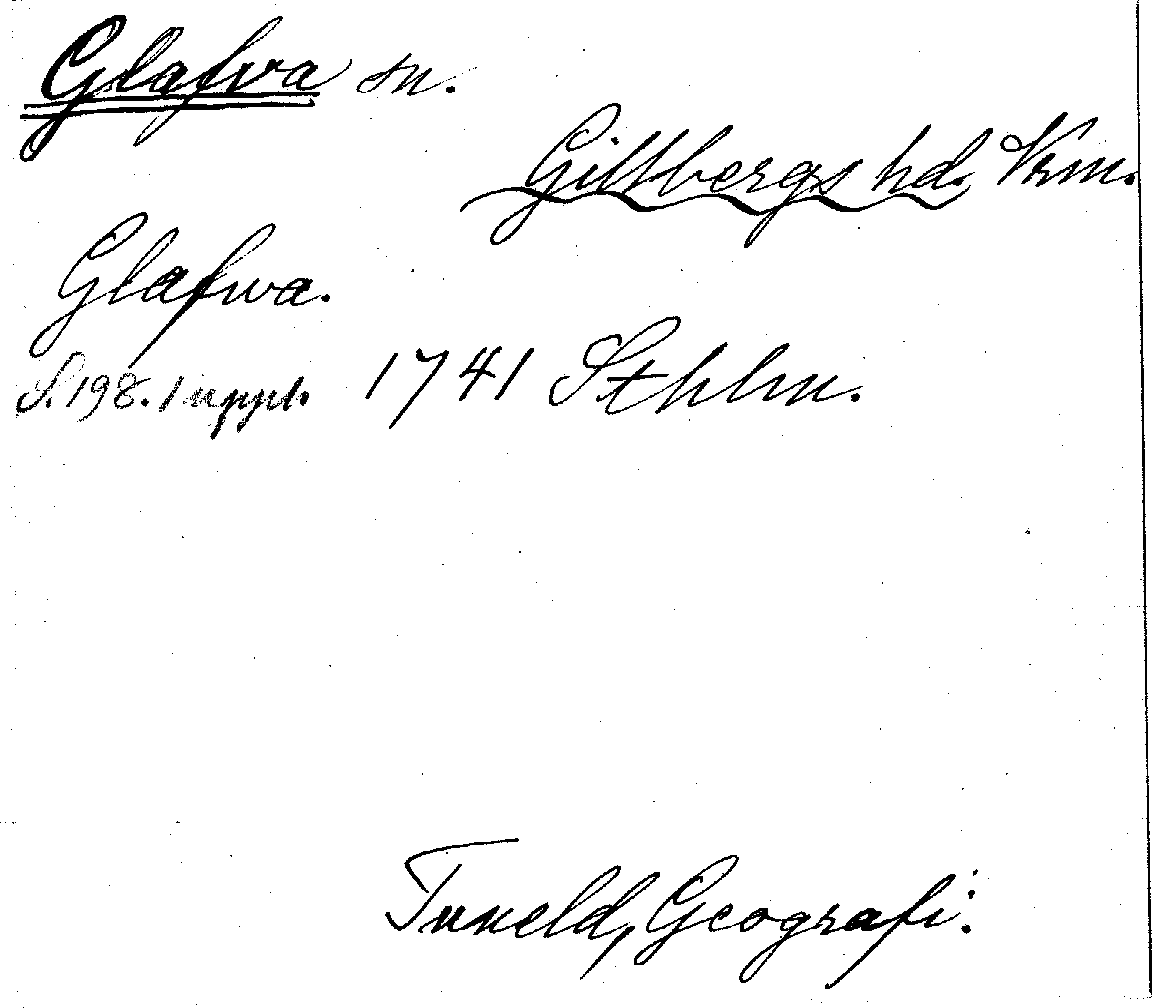 Glafwa sn.
Gillbergs hd. Vrm.
Glafwa.
S. 198. 1 uppl. 1741 Sthlm.
Tuneld, Geografi.